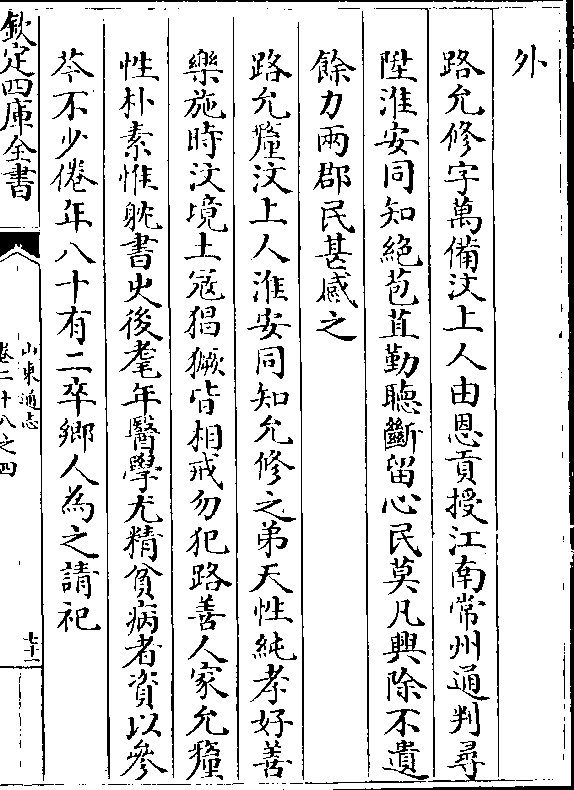 外
路允修字萬備汶上人由恩貢授江南常州通判尋
陞淮安同知絶苞苴勤聽斷留心民莫凡興除不遺
餘力兩郡民甚感之
路允釐汶上人淮安同知允修之弟天性純孝好善
樂施時汶境土寇猖獗皆相戒勿犯路善人家允釐
性朴素惟躭書史後耄年醫學尤精貧病者資以參
苓不少倦年八十有二卒鄉人為之請祀
欽定四庫全書
山東通志
卷二十八之四